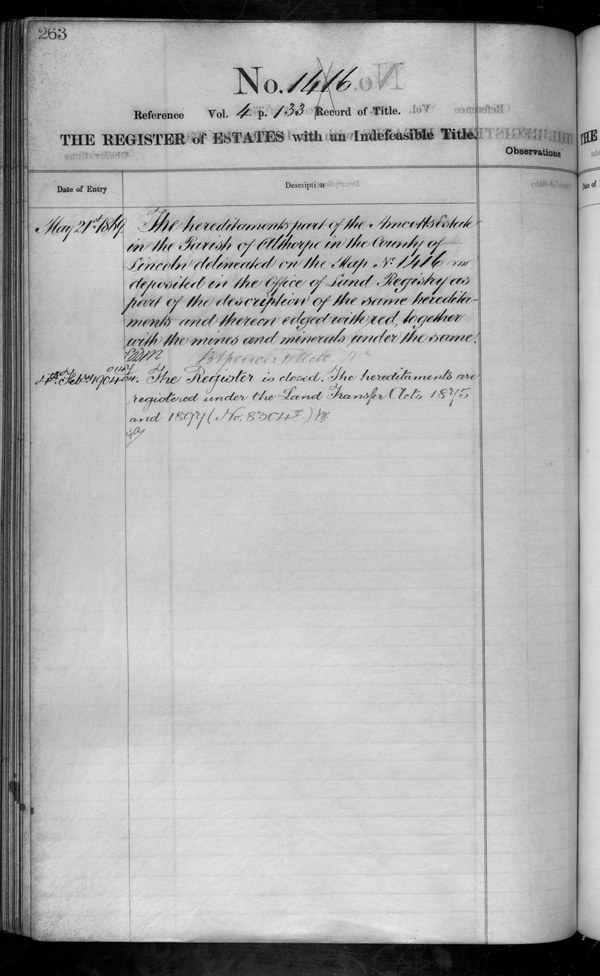 263
No. 1416
Reference Vol. 4 p. 133 Record of Title.
THE REGISTER of ESTATES with an Indefeasible Title.
Observations
Date of Entry
Description
May 21st 1869. The hereditaments part of the Amcotts Estate
in the Parish of Oulthorpe in the County of
Lincoln delineated on the Map No. 1416
deposited in the Office of Land Registry as
part of the description of the same heredita-
ments and thereon edged with red, together
with the mines and minerals under the same.
The Register is closed. The hereditaments are
registered under the Land Transfer Acts 1875
and 1897 (No. 8304
THE
Date of